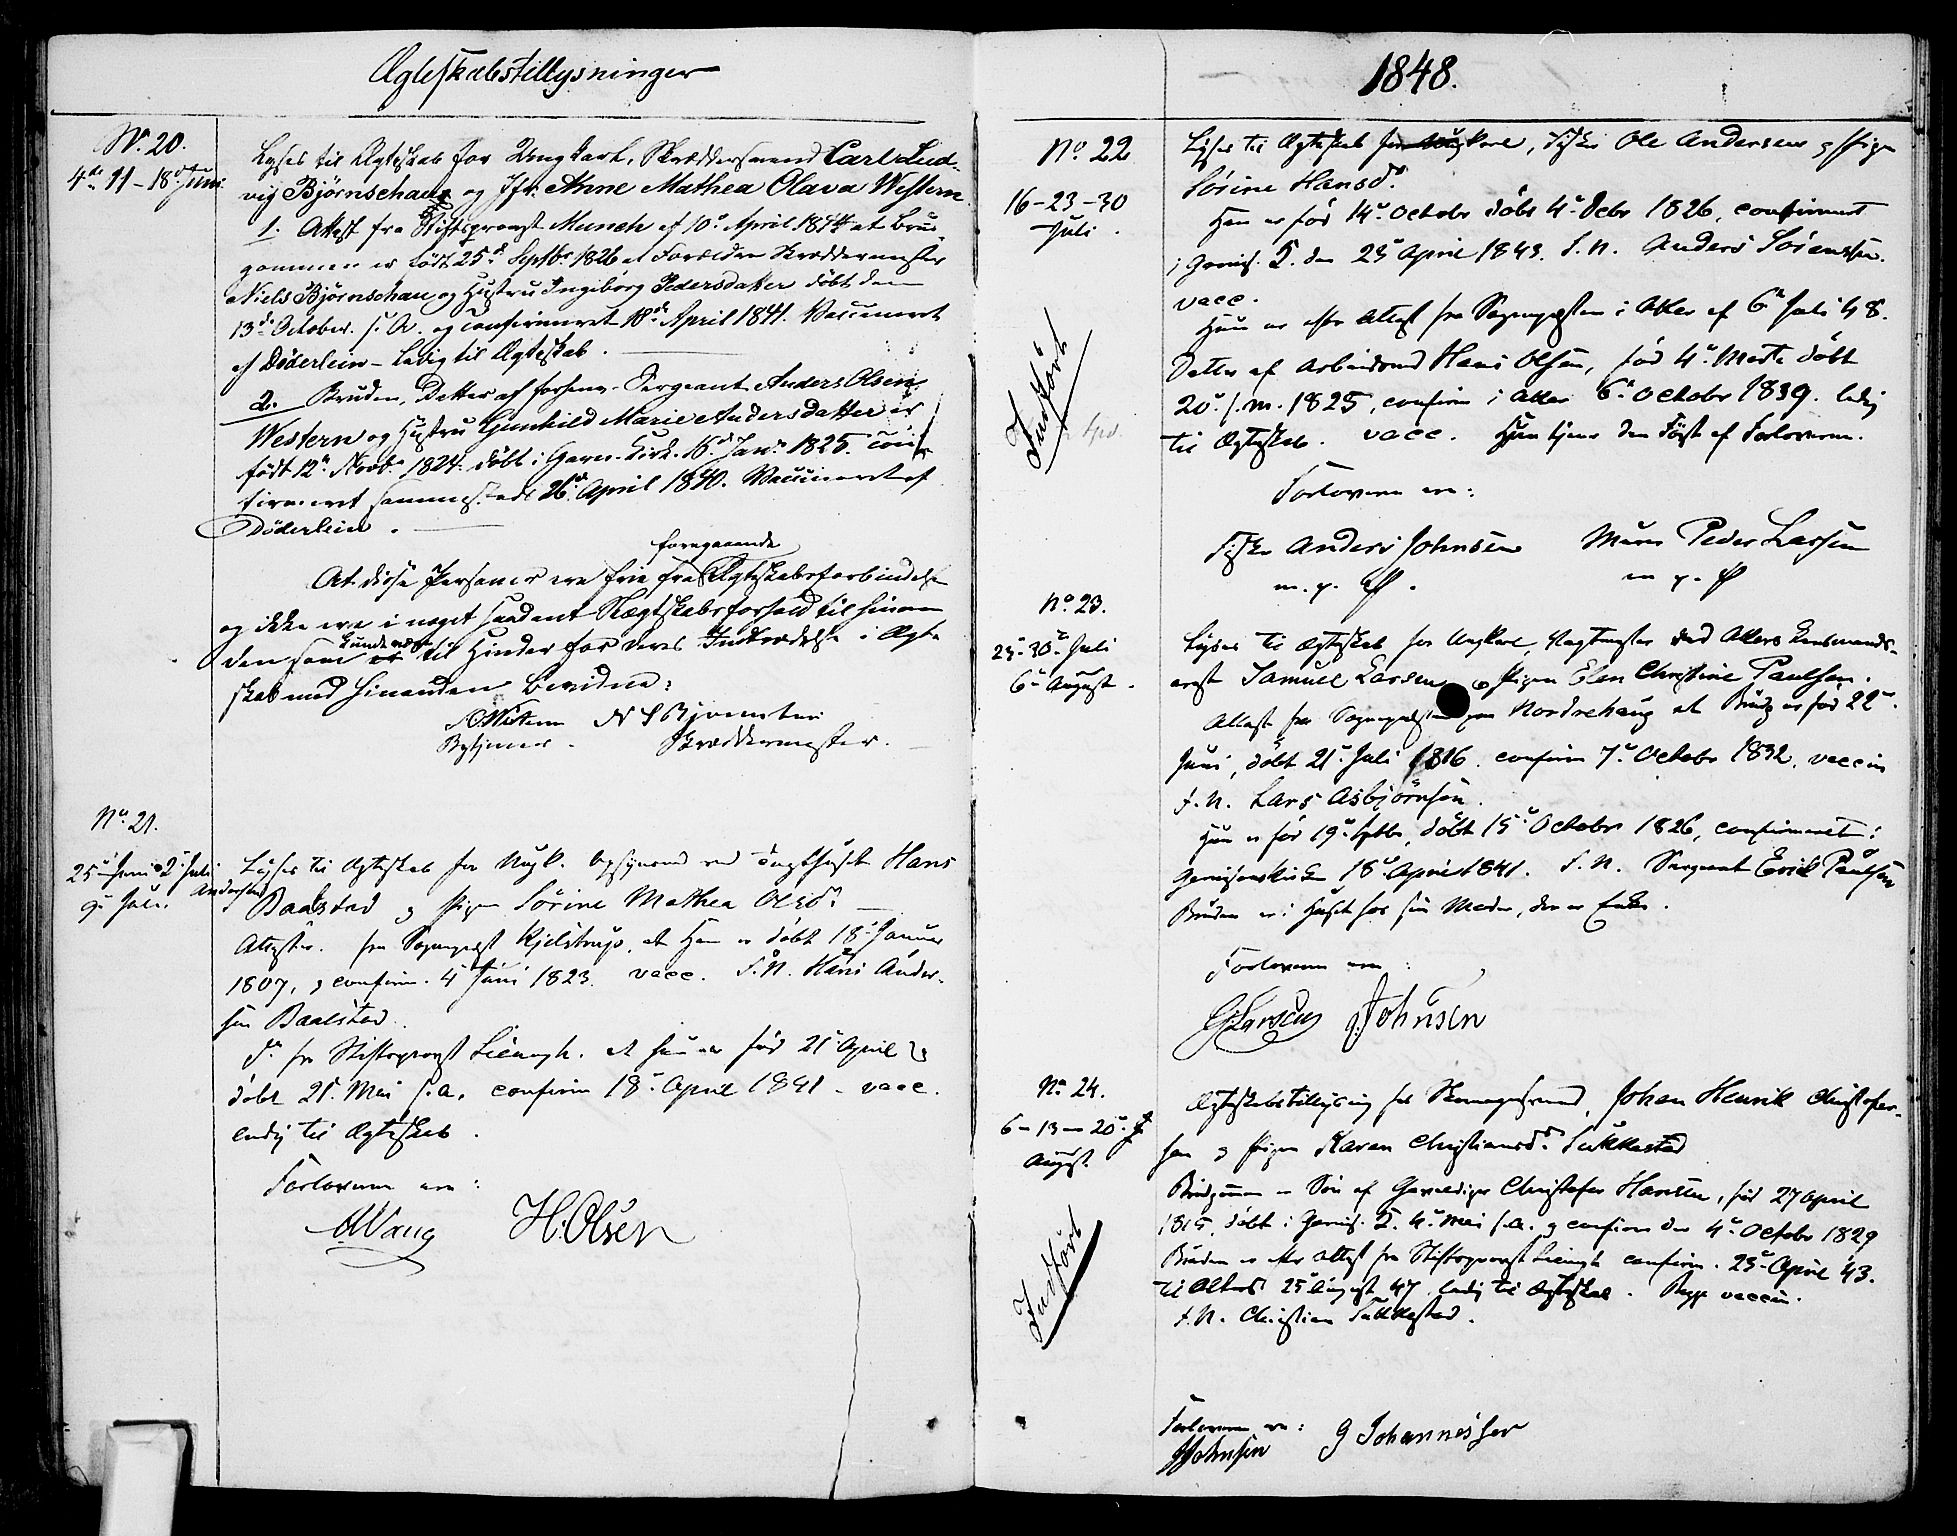 Ægteskabstillysninger
No. 20.
4de 11 - 18de Juni
Lyses til Ægteskab for Ungkarl, Skræddersvend Carl Lud-
vig Bjørnschau og Jfr. Anne Mathea Olava Western
1. Attest fra Stiftsprovst Munch af 10de April 1844 at Brud-
gommen er født 25de Septbr 1826 af Forældre Skræddermester
Niels Bjørnschau og Hustru Ingeborg Pedersdatter døbt den
13de October s. A. og confirmeret 18de April 1841. Vaccineret
af Døderlein - Ledig til Ægteskab.
2. Bruden, Datter af forhenv. Sergeant Anders Olsen
Western og Hustru Gunhild Marie Andersdatter er
født 12te Novbr 1824 døbt i Garn. Kirk. 16de Janr 1825. Con-
firmeret sammesteds 26de April 1840. Vaccineret af
Døderlein.
foregaaende
At disse Personer ere frie fra Ægteskabsforbindelse
og ikke ere i noget saadant Slægtskabsforhold til hinan-
den som kunde være til Hinder for deres Indtrædelse i Ægte-
skab med hinanden bevidne:
Western N S Bjørnschau
Skræddermester.
No. 21.
25de Juni 2de Juli
9de Juli.
Lyses til Ægteskab for Ungk. Opsynsmd ved Tugthuset Hans
Andersen
Baalstad og Pigen Sørine Mathea Olsdr.
Attester. fra Sognepræst Kjelstrup, at Han er døbt 18de Januar
1807, og confirm. 4 Juni 1823. vacc. F. N. Hans Ander-
sen Baalstad.
do fra Stiftsprovst Lienngh. at hun er fød 21 April
døbt 21. Mai s. a. confirm 18de April 1841 - vacc.
ledig til Ægteskab.
Forloverne ere:
AWang H. Olsen
1848.
No. 22
16 - 23 - 30
Juli.
Indført
Lyses til Ægteskab for Ungkarl, Fisker Ole Andersen og Pige
Sørine Hansdr.
Han er fød 14de Octobr døbt 4de Debr 1826, confirmert
i Garnis. K. den 23de April 1843. F. N. Anders Sørenssen.
vacc.
Hun er efter Attest fra Sognepræsten i Aker af 6te Juli 48.
Datter af Arbeidsmd Hans Olsen, fød 4de Marts døbt
20de s. m. 1825, confirm i Aker 6te Octobr 1839. ledig
til Ægteskab. vacc. Hun tjener den Først af Forloverne.
Forloverne ere:
Fisker Anders Johnsen Murer Peder Larsen
m. p. P. m. p. P
No. 23.
23de - 30de Juli
6te August.
Lyses til Ægteskab for Ungkarl, Vagtmester ved Akers Lensmands-
arrest Samuel Larsen og Pigen Elen Christine Paulsen.
Attest fra Sognepræsten paa Nordrehaug at Brudg er fød 22de
Juni, døbt 21de Juli 1816. confirm 7de Octobr 1832. vaccin
F. N. Lars Asbjørnsen.
Hun er fød 19de Septbr, døbt 15de Octobr 1826, confirmeret i
Garnisonskirken 18de April 1841. F. N. Sergeant Erick Paulsen
Bruden er i Huset hos sin Moder, der er Enke.
Forloverne ere:
G. Larsen J. Johnsen
No. 24.
6 - 13 - 20de
August
Indført
Ægteskabstillysning for Skomagersvend, Johan Henrik Christofer-
sen og Pigen Karen Christiansdr. Sukkestad
Brudgommen er Søn af Gevaldiger Christofer Hansen, fød 27 April
1815, døbt i Garnis. K. 4de Mai s. a. og confirm den 4de Octobr 1829
Bruden er efter Attest fra Stiftsprovst Lienngh confirm. 23de April 43.
til Alters 25 August 47 ledig til Ægteskab. Begge vaccin.
F. N. Christian Sukkestad.
Forloverne ere:
JJohnsen G Johannessen